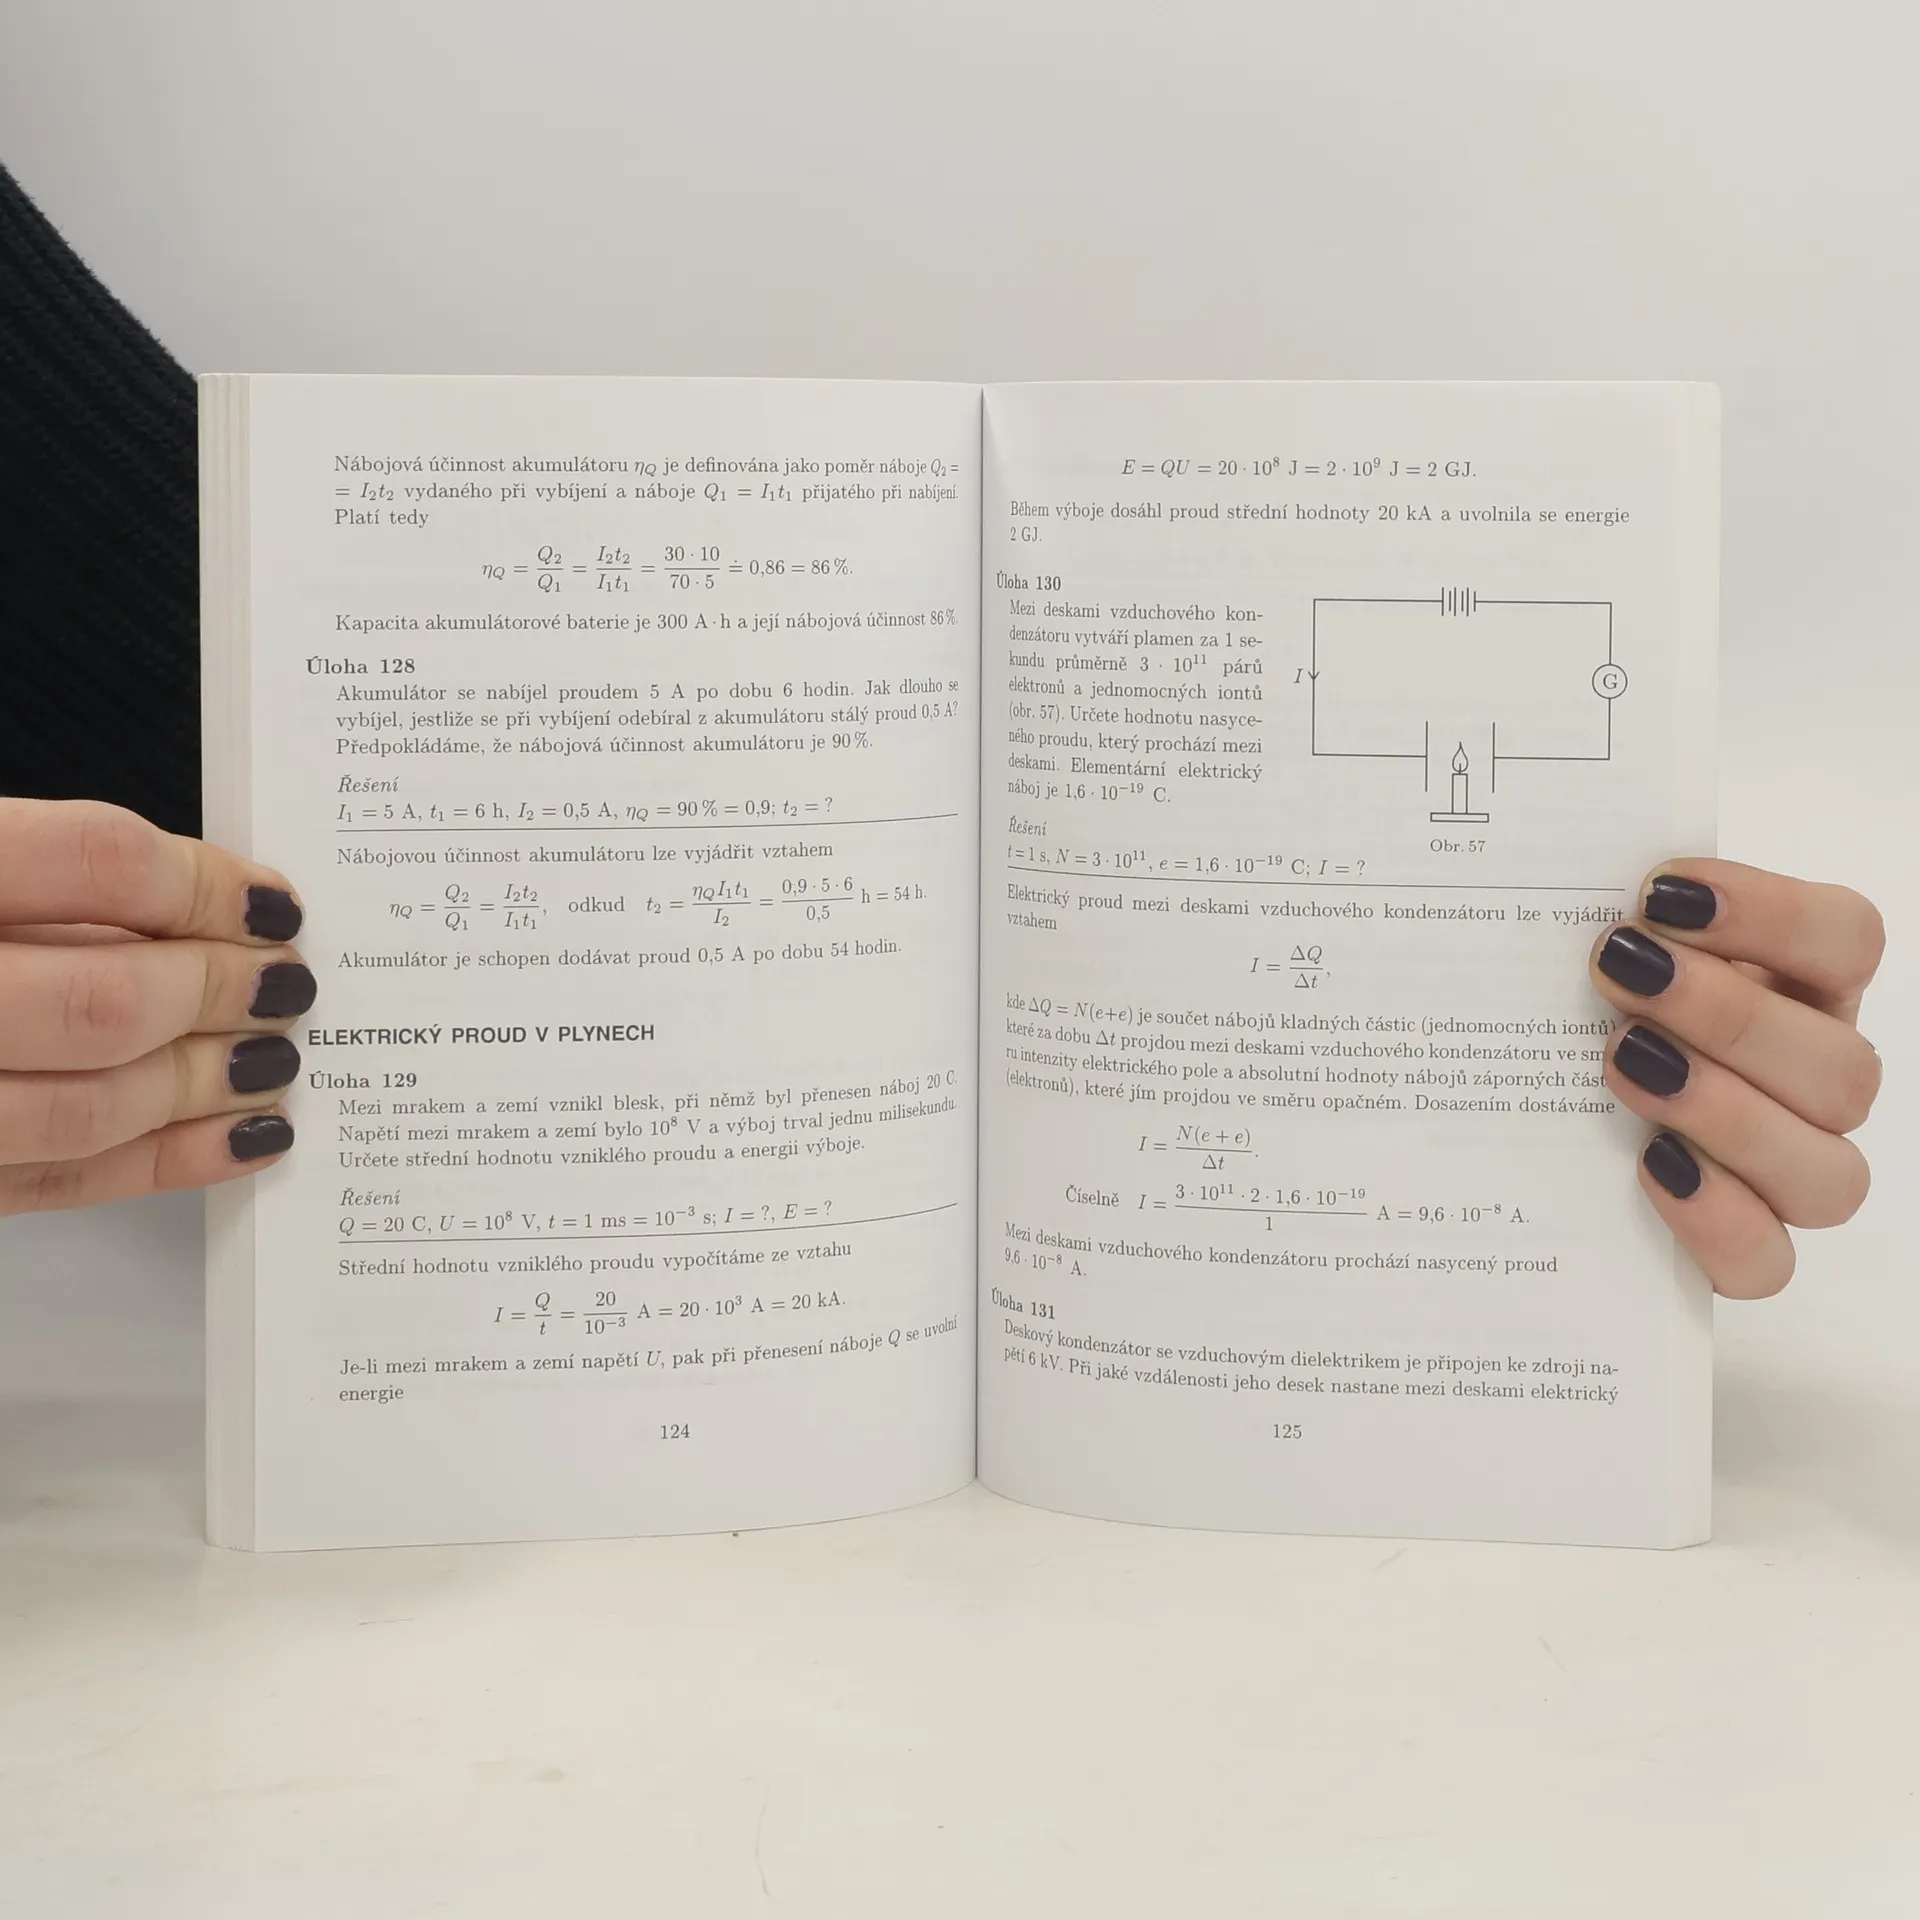 Nábojová účinnost akumulátoru ηQ je definována jako poměr náboje Q₂ =
= I₂t₂ vydaného při vybíjení a náboje Q₁ = I₁t₁ přijatého při nabíjení.
Platí tedy
ηQ = Q₂/Q₁ = I₂t₂/I₁t₁ = 30 · 10/70 · 5 ≐ 0,86 = 86 %.
Kapacita akumulátorové baterie je 300 A · h a její nábojová účinnost 86 %.
Úloha 128
Akumulátor se nabíjel proudem 5 A po dobu 6 hodin. Jak dlouho se
vybíjel, jestliže se při vybíjení odebíral z akumulátoru stálý proud 0,5 A?
Předpokládáme, že nábojová účinnost akumulátoru je 90 %.
Řešení
I₁ = 5 A, t₁ = 6 h, I₂ = 0,5 A, ηQ = 90 % = 0,9; t₂ = ?
Nábojovou účinnost akumulátoru lze vyjádřit vztahem
ηQ = Q₂/Q₁ = I₂t₂/I₁t₁, odkud t₂ = ηQI₁t₁/I₂ = 0,9 · 5 · 6/0,5 h = 54 h.
Akumulátor je schopen dodávat proud 0,5 A po dobu 54 hodin.
ELEKTRICKÝ PROUD V PLYNECH
Úloha 129
Mezi mrakem a zemí vznikl blesk, při němž byl přenesen náboj 20 C.
Napětí mezi mrakem a zemí bylo 10⁸ V a výboj trval jednu milisekundu.
Určete střední hodnotu vzniklého proudu a energii výboje.
Řešení
Q = 20 C, U = 10⁸ V, t = 1 ms = 10⁻³ s; I = ?, E = ?
Střední hodnotu vzniklého proudu vypočítáme ze vztahu
I = Q/t = 20/10⁻³ A = 20 · 10³ A = 20 kA.
Je-li mezi mrakem a zemí napětí U, pak při přenesení náboje Q se uvolní
energie
124
E = QU = 20 · 10⁸ J = 2 · 10⁹ J = 2 GJ.
Během výboje dosáhl proud střední hodnoty 20 kA a uvolnila se energie
2 GJ.
Úloha 130
Mezi deskami vzduchového kon-
denzátoru vytváří plamen za 1 se-
kundu průměrně 3 · 10¹¹ párů
elektronů a jednomocných iontů
(obr. 57). Určete hodnotu nasyce-
ného proudu, který prochází mezi
deskami. Elementární elektrický
náboj je 1,6 · 10⁻¹⁹ C.
I
G
Obr. 57
Řešení
t = 1 s, N = 3 · 10¹¹, e = 1,6 · 10⁻¹⁹ C; I = ?
Elektrický proud mezi deskami vzduchového kondenzátoru lze vyjádřit
vztahem
I = ΔQ/Δt,
kde ΔQ = N(e+e) je součet nábojů kladných částic (jednomocných iontů)
které za dobu Δt projdou mezi deskami vzduchového kondenzátoru ve sm
ru intenzity elektrického pole a absolutní hodnoty nábojů záporných část
(elektronů), které jím projdou ve směru opačném. Dosazením dostáváme
I = N(e + e)/Δt.
Číselně I = 3 · 10¹¹ · 2 · 1,6 · 10⁻¹⁹/1 A = 9,6 · 10⁻⁸ A.
Mezi deskami vzduchového kondenzátoru prochází nasycený proud
9,6 · 10⁻⁸ A.
Úloha 131
Deskový kondenzátor se vzduchovým dielektrikem je připojen ke zdroji na-
pětí 6 kV. Při jaké vzdálenosti jeho desek nastane mezi deskami elektrický
125